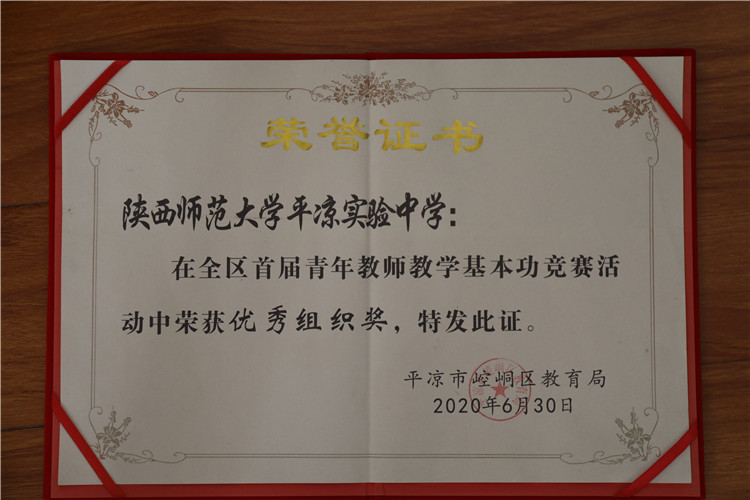 荣誉证书
陕西师范大学平凉实验中学：
在全区首届青年教师教学基本功竞赛活
动中荣获优秀组织奖，特发此证。
平凉市崆峒区教育局
2020年6月30日